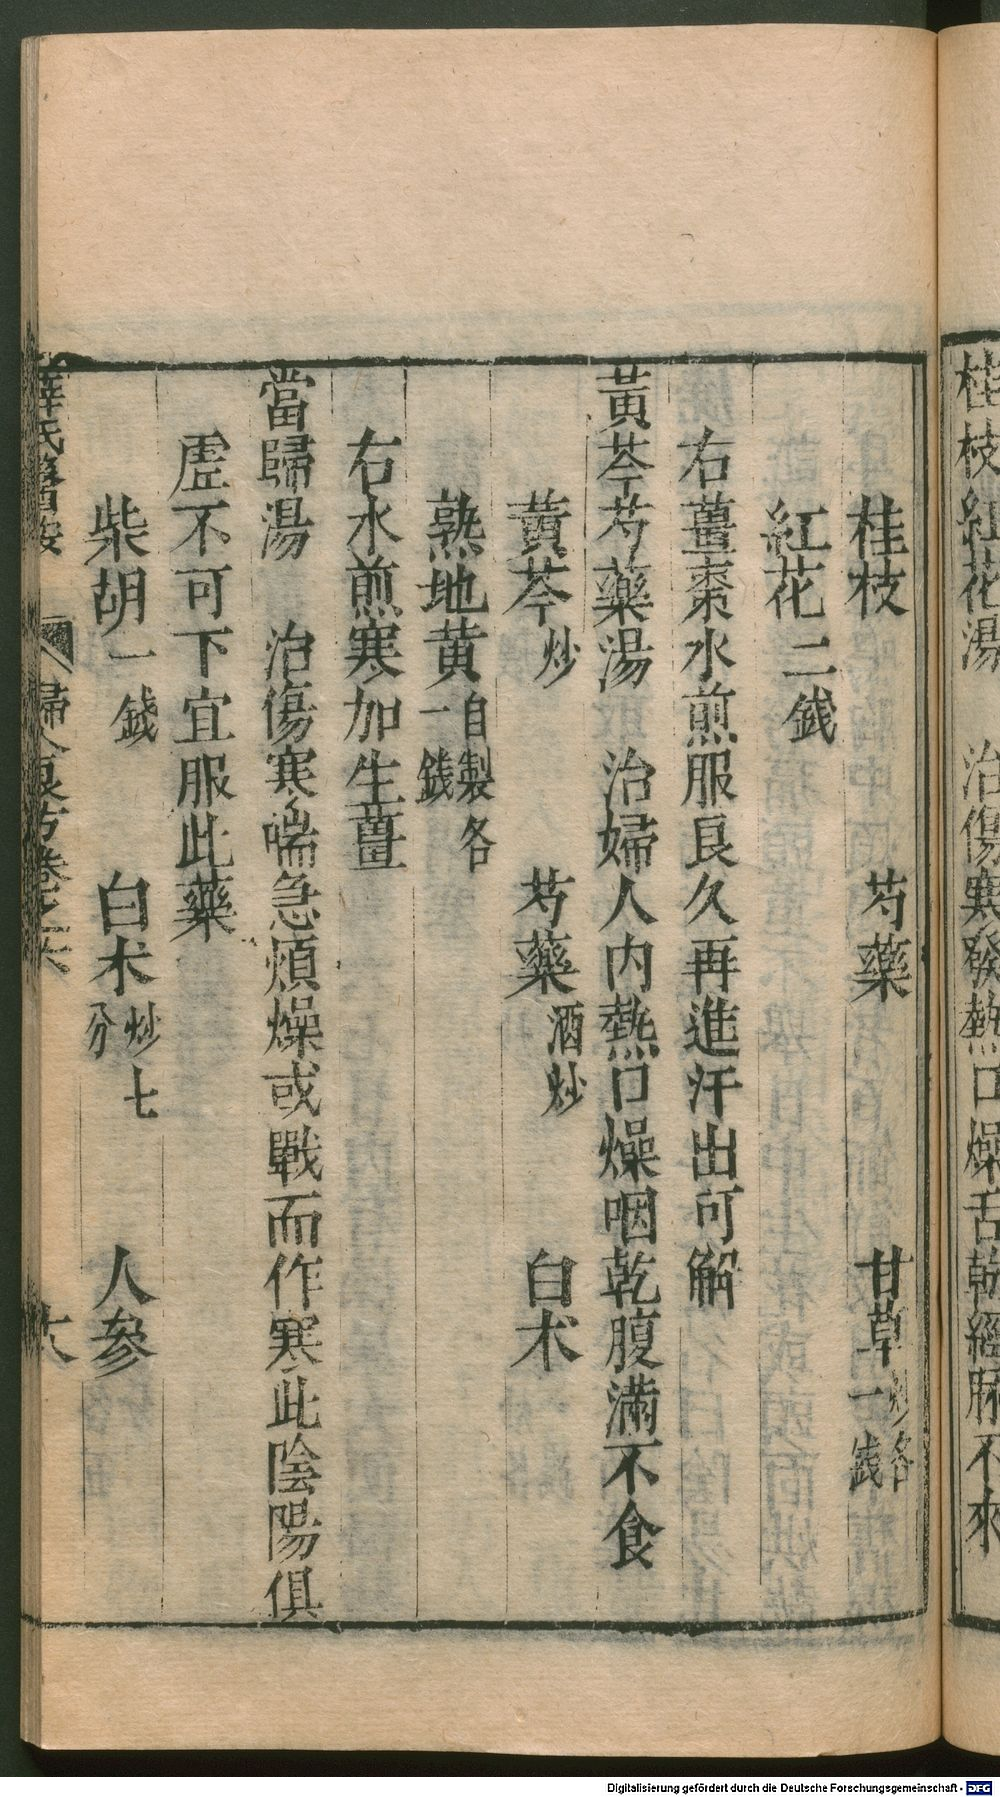 桂枝紅花湯　治傷寒發熱口燥舌乾經脉不來
桂枝　芍藥　甘草炒各一錢
紅花二錢
右薑棗水煎服良久再進汗出可解
黃芩芍藥湯　治婦人内熱口燥咽乾腹滿不食
黃芩炒　芍藥酒炒　白朮
熟地黄自製各一錢
右水煎寒加生薑
當歸湯　治傷寒喘急煩燥或戰而作寒此陰陽俱
虛不可下宜服此藥
柴胡一錢　白朮炒七分　人參
薛氏醫按　婦人良方卷之六　六
Digitalisierung gefördert durch die Deutsche Forschungsgemeinschaft - DFG